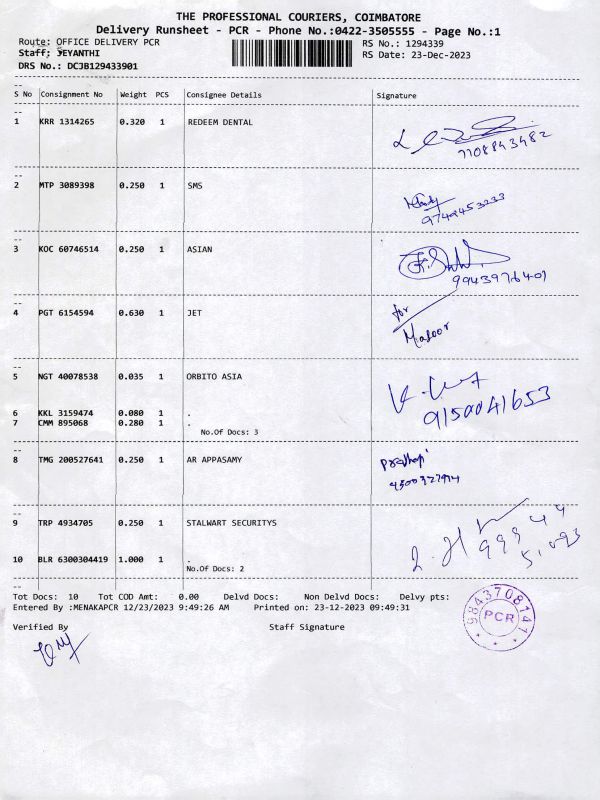 THE PROFESSIONAL COURIERS, COIMBATORE
Delivery Runsheet - PCR - Phone No.:0422-3505555 - Page No.:1
Route: OFFICE DELIVERY PCR RS No.: 1294339
Staff; JEYANTHI RS Date: 23-Dec-2023
DRS No.: DCJB129433901
S No Consignment No Weight PCS Consignee Details Signature
1 KRR 1314265 0.320 1 REDEEM DENTAL
7708843482
2 MTP 3089398 0.250 1 SMS
9749453233
3 KOC 60746514 0.250 1 ASIAN
9943976401
4 PGT 6154594 0.630 1 JET
for
Manoor
5 NGT 40078538 0.035 1 ORBITO ASIA
9150041653
6 KKL 3159474 0.080 1 .
7 CMM 895068 0.280 1 .
No.Of Docs: 3
8 TMG 200527641 0.250 1 AR APPASAMY
9 TRP 4934705 0.250 1 STALWART SECURITYS
99944
51093
10 BLR 6300304419 1.000 1 .
No.Of Docs: 2
Tot Docs: 10 Tot COD Amt: 0.00 Delvd Docs: Non Delvd Docs: Delvy pts:
Entered By :MENAKAPCR 12/23/2023 9:49:26 AM Printed on: 23-12-2023 09:49:31
Verified By Staff Signature
9843708141
PCR